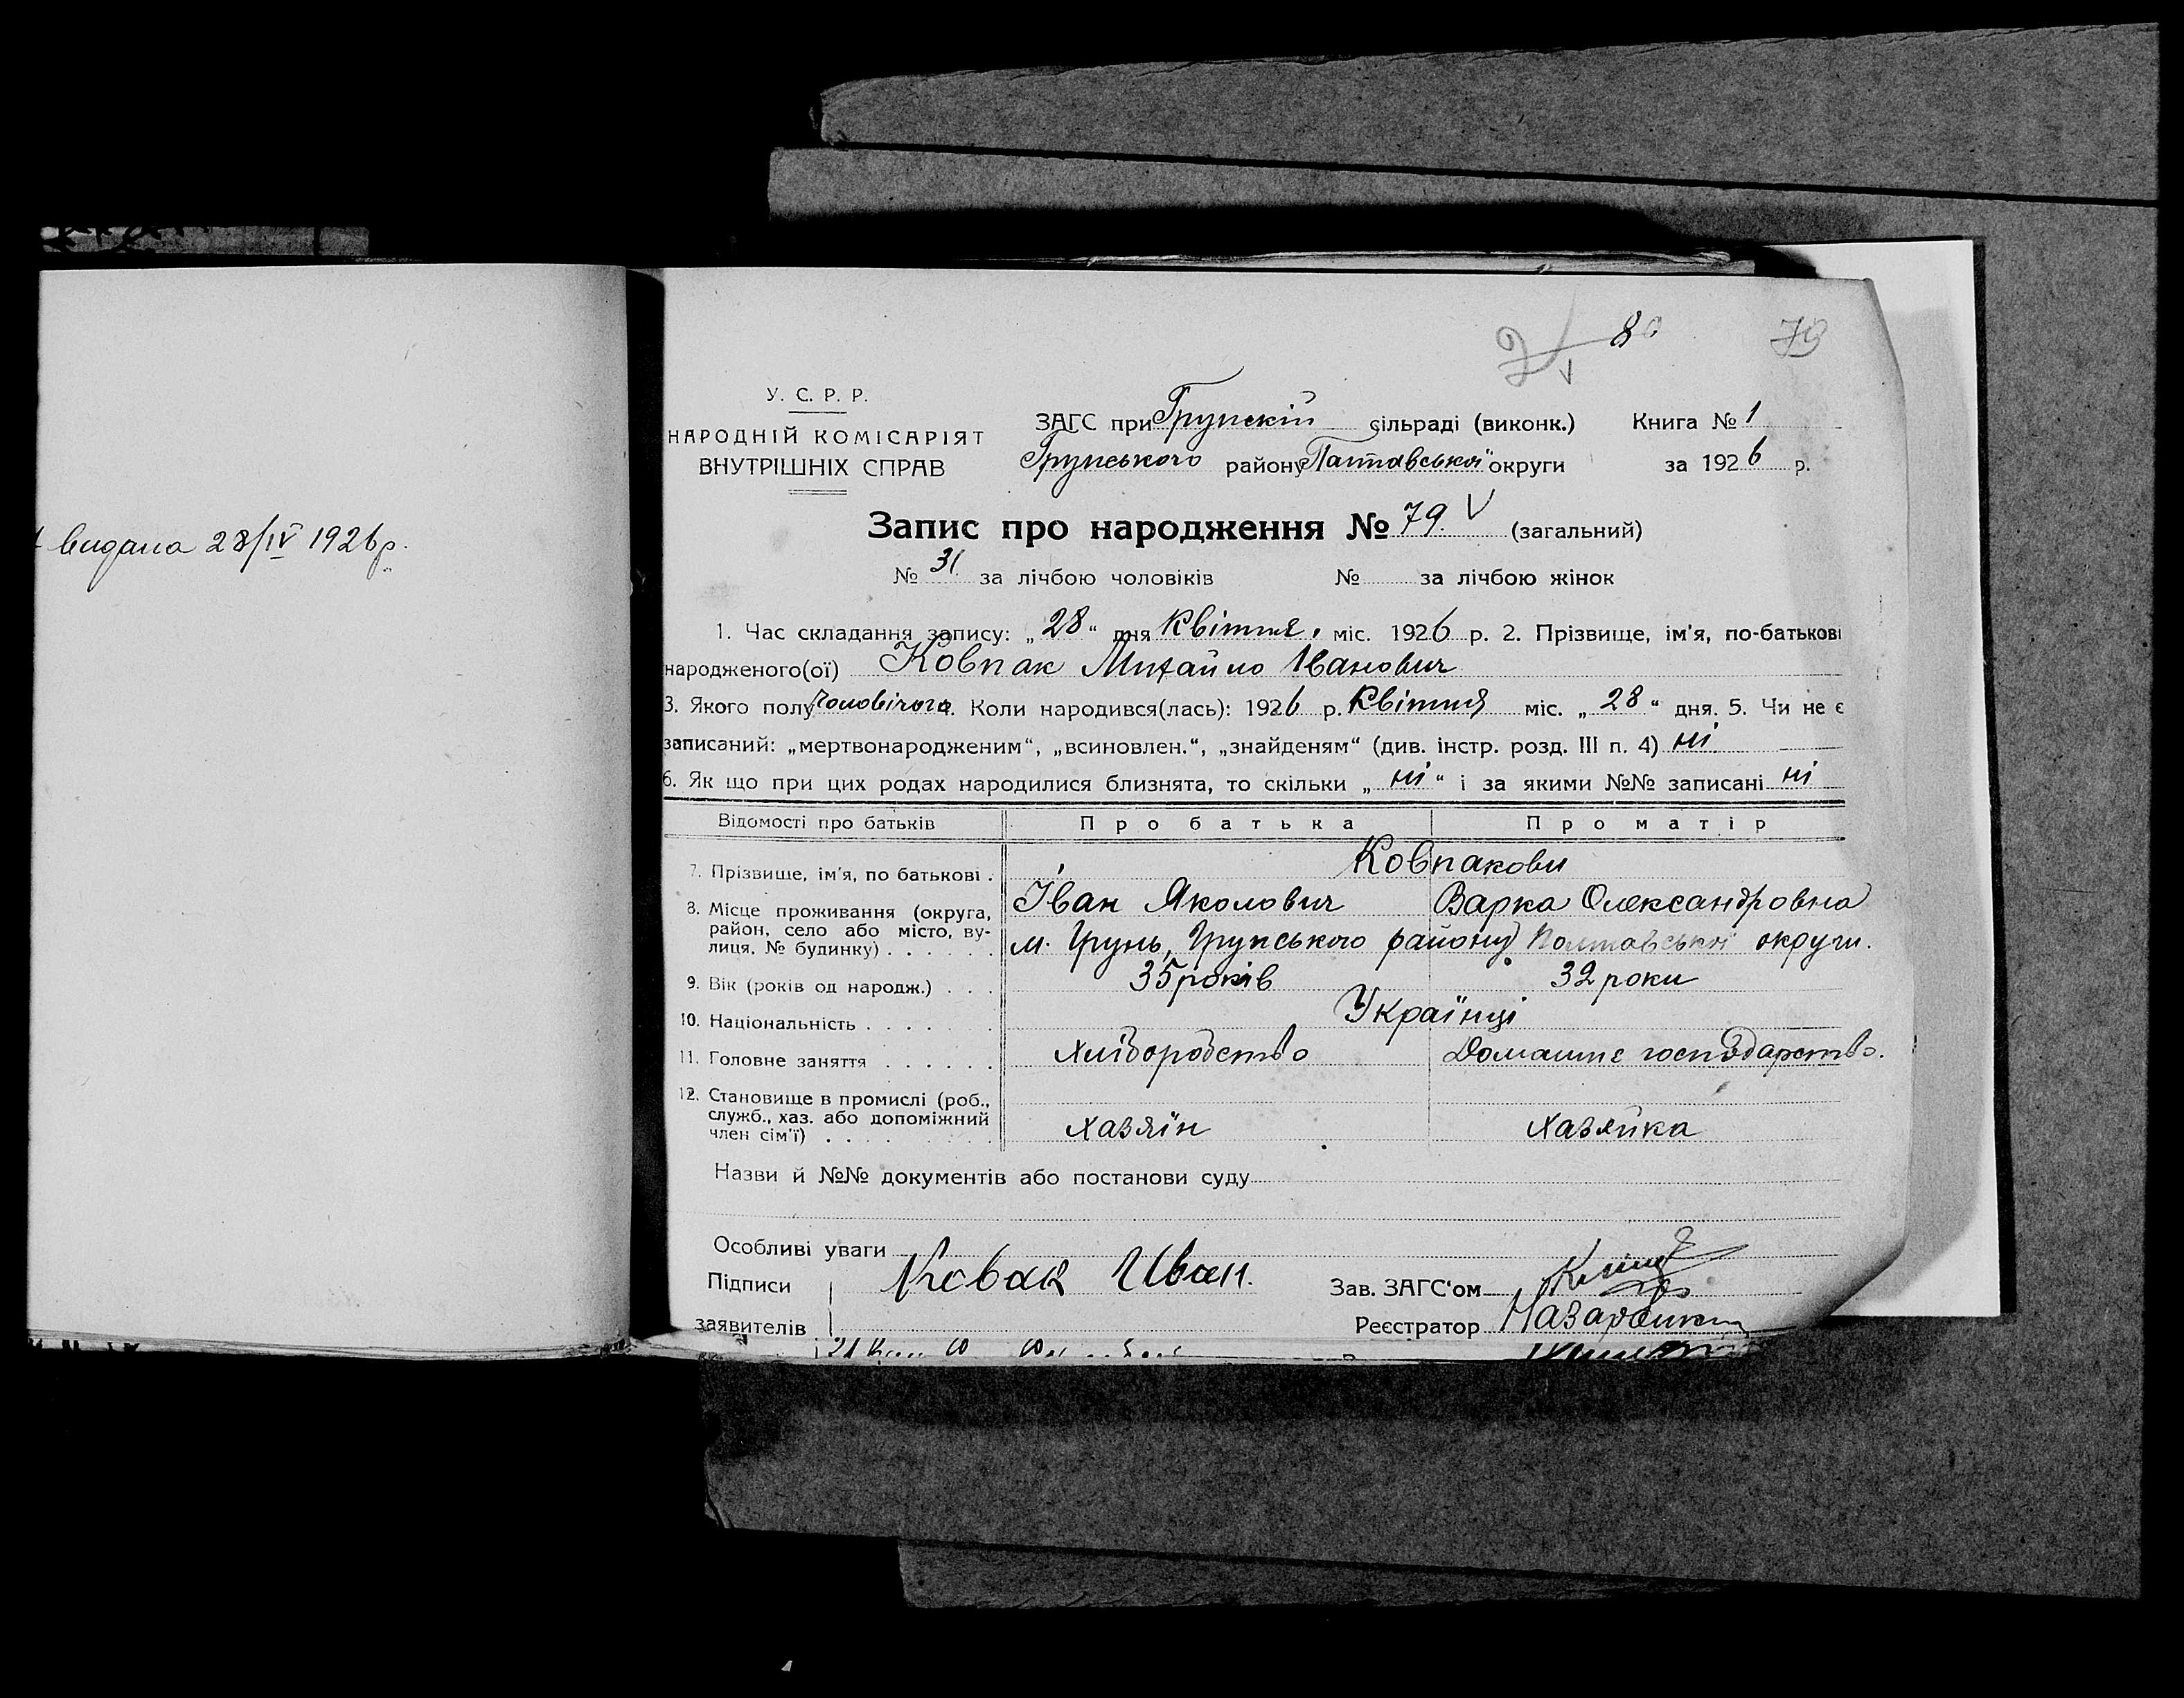 80 79
У. С. Р. Р.
НАРОДНІЙ КОМІСАРІЯТ
ВНУТРІШНІХ СПРАВ
ЗАГС при Грунскій сільраді (виконк.) Книга № 1
Грунського району Полтавської округи за 1926 р.
видана 28/IV 1926 р.
Запис про народження № 79. (загальний)
№ 31. за лічбою чоловіків № за лічбою жінок
1. Час складання запису: „28“ дня Квітня, міс. 1926 р. 2. Прізвище, ім'я, по-батькові
народженого(ої) Ковпак Михайло Іванович
3. Якого полу чоловічого. Коли народився(лась): 1926 р. Квітня міс. „28“ дня. 5. Чи не є
записаний: „мертвонародженим“, „всиновлен.“, „знайденям“ (див. інстр. розд. III п. 4) ні.
6. Як що при цих родах народилися близнята, то скільки „ні“ і за якими №№ записані ні
Відомості про батьків Про батька Про матір
7. Прізвище, ім'я, по батькові . Ковпакови
Іван Яколович Варка Олександровна
8. Місце проживання (округа,
район, село або місто, ву-
лиця, № будинку) . . . . . . м. Грунь, Грунського району Полтавської округи.
9. Вік (років од народж.) . . . 35 років 32 роки
10. Національність . . . . . . Українці
11. Головне заняття . . . . . . Хліборобство Домашнє господарство.
12. Становище в промислі (роб.,
служб., хаз. або допоміжний
член сім'ї) . . . . . . Хазяїн Хазяйка
Назви й №№ документів або постанови суду
Особливі уваги
Підписи Ковпак Иван. Зав. ЗАГС'ом
заявителів Реєстратор